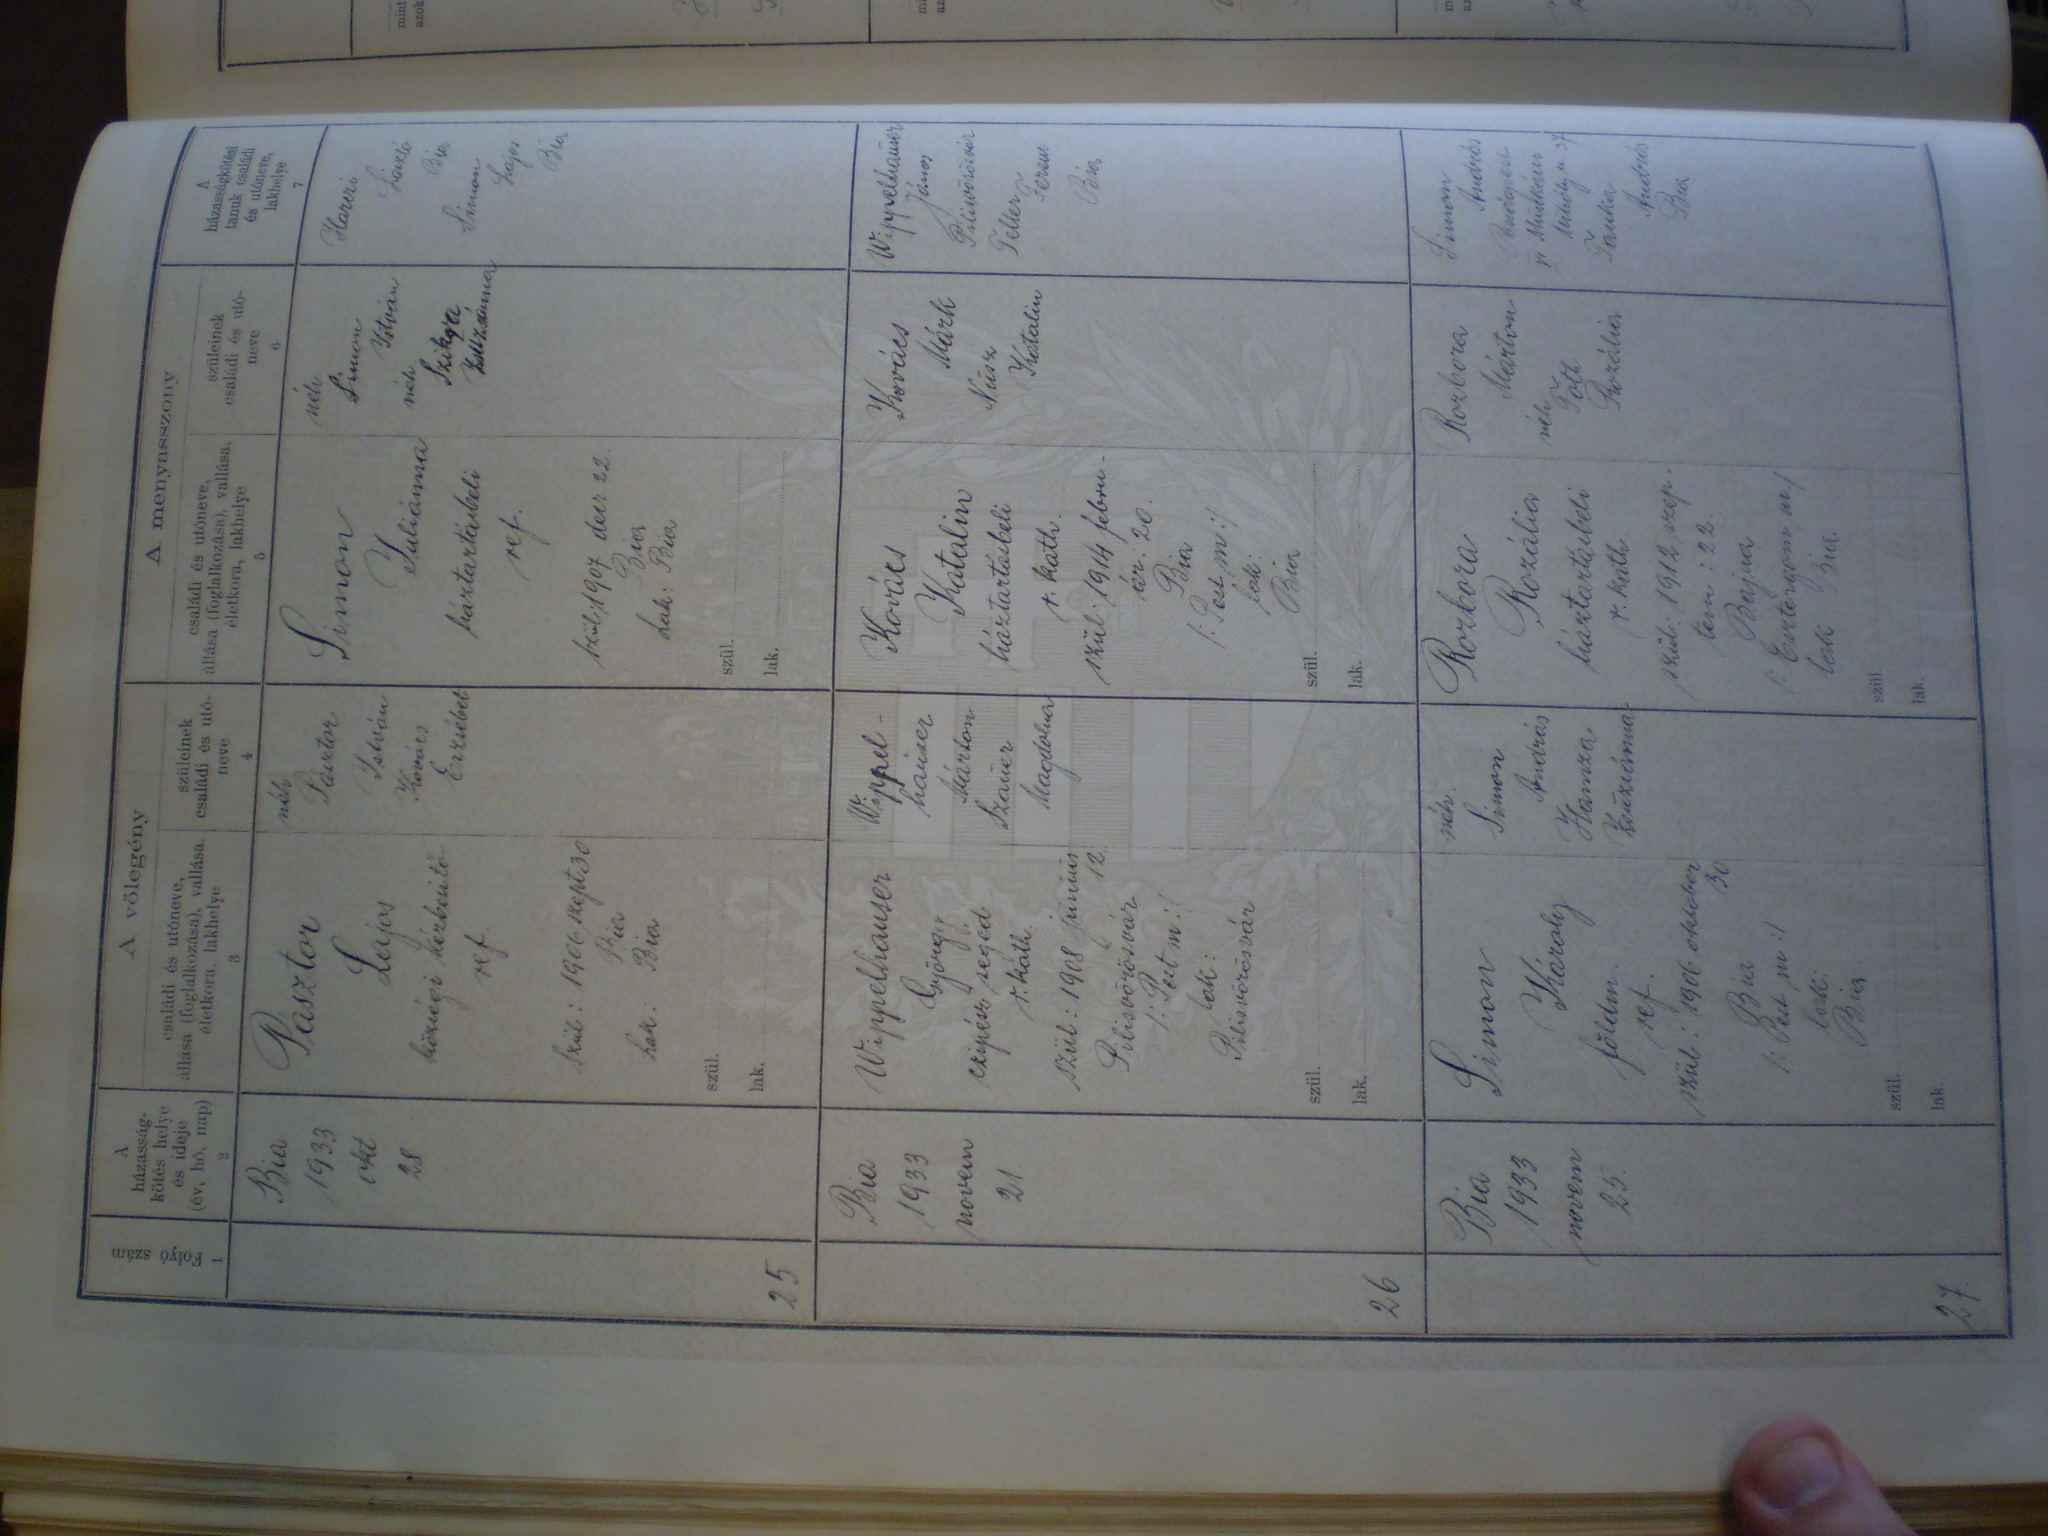 Folyó szám
1
A
házasság-
kötés helye
és ideje
(év, hó, nap)
2
A vőlegény
családi és utóneve,
állása (foglalkozása), vallása,
életkora, lakhelye
3
szüleinek
családi és utó-
neve
4
A menyasszony
családi és utóneve,
állása (foglalkozása), vallása,
életkora, lakhelye
5
szüleinek
családi és utó-
neve
6
A
házasságkötési
tanuk családi
és utóneve,
lakhelye
7
25
Bia
1933
okt
28
Pásztor
Lajos
községi kézbesitő
ref.
szül: 1906 szept 30
Bia
Lak: Bia
szül.
lak.
néh
Pásztor
István
Kovács
Erzsébet
Simon
Juliánna
háztartásbeli
ref.
szül: 1907 dec 22.
Bia
Lak: Bia
szül.
lak.
néh
Simon
István
néh
Szikra
Zsuzsánna
László
Bia
Simon
Lajos
Bia
26
Bia
1933
novem
21.
Wippelhauser
György
cipész segéd
r. kath.
szül: 1908 június
12.
Pilisvörösvár
/: Pest m :/
lak:
Pilisvörösvár
szül.
lak.
Wippel-
hauser
Márton
Szauer
Magdolna
Kovács
Katalin
háztartásbeli
r. kath.
szül: 1914 febru-
ár: 20.
Bia
/: Pest m :/
lak:
Bia
szül.
lak.
Kovács
Márk
Nusz
Katalin
Wippelhauser
János
Pilisvörösvár
Teller Ferenc
Bia
27.
Bia
1933
novem
25.
Simon
Károly
földm.
ref.
szül: 1906 október
30
Bia
/: Pest m :/
lak:
Bia.
szül.
lak
néh.
Simon
András
Hamza
Zsuzsánna
Rozbora
Rozália
háztartásbeli
r. kath
szül: 1912 szep.
tem: 22.
Bajna
/: Esztergom m /
lak Bia
szül
lak.
Rozbora
Márton
néh
Tóth
Rozália
Simon
András
Budapest
Mihály u 37
András
Bia